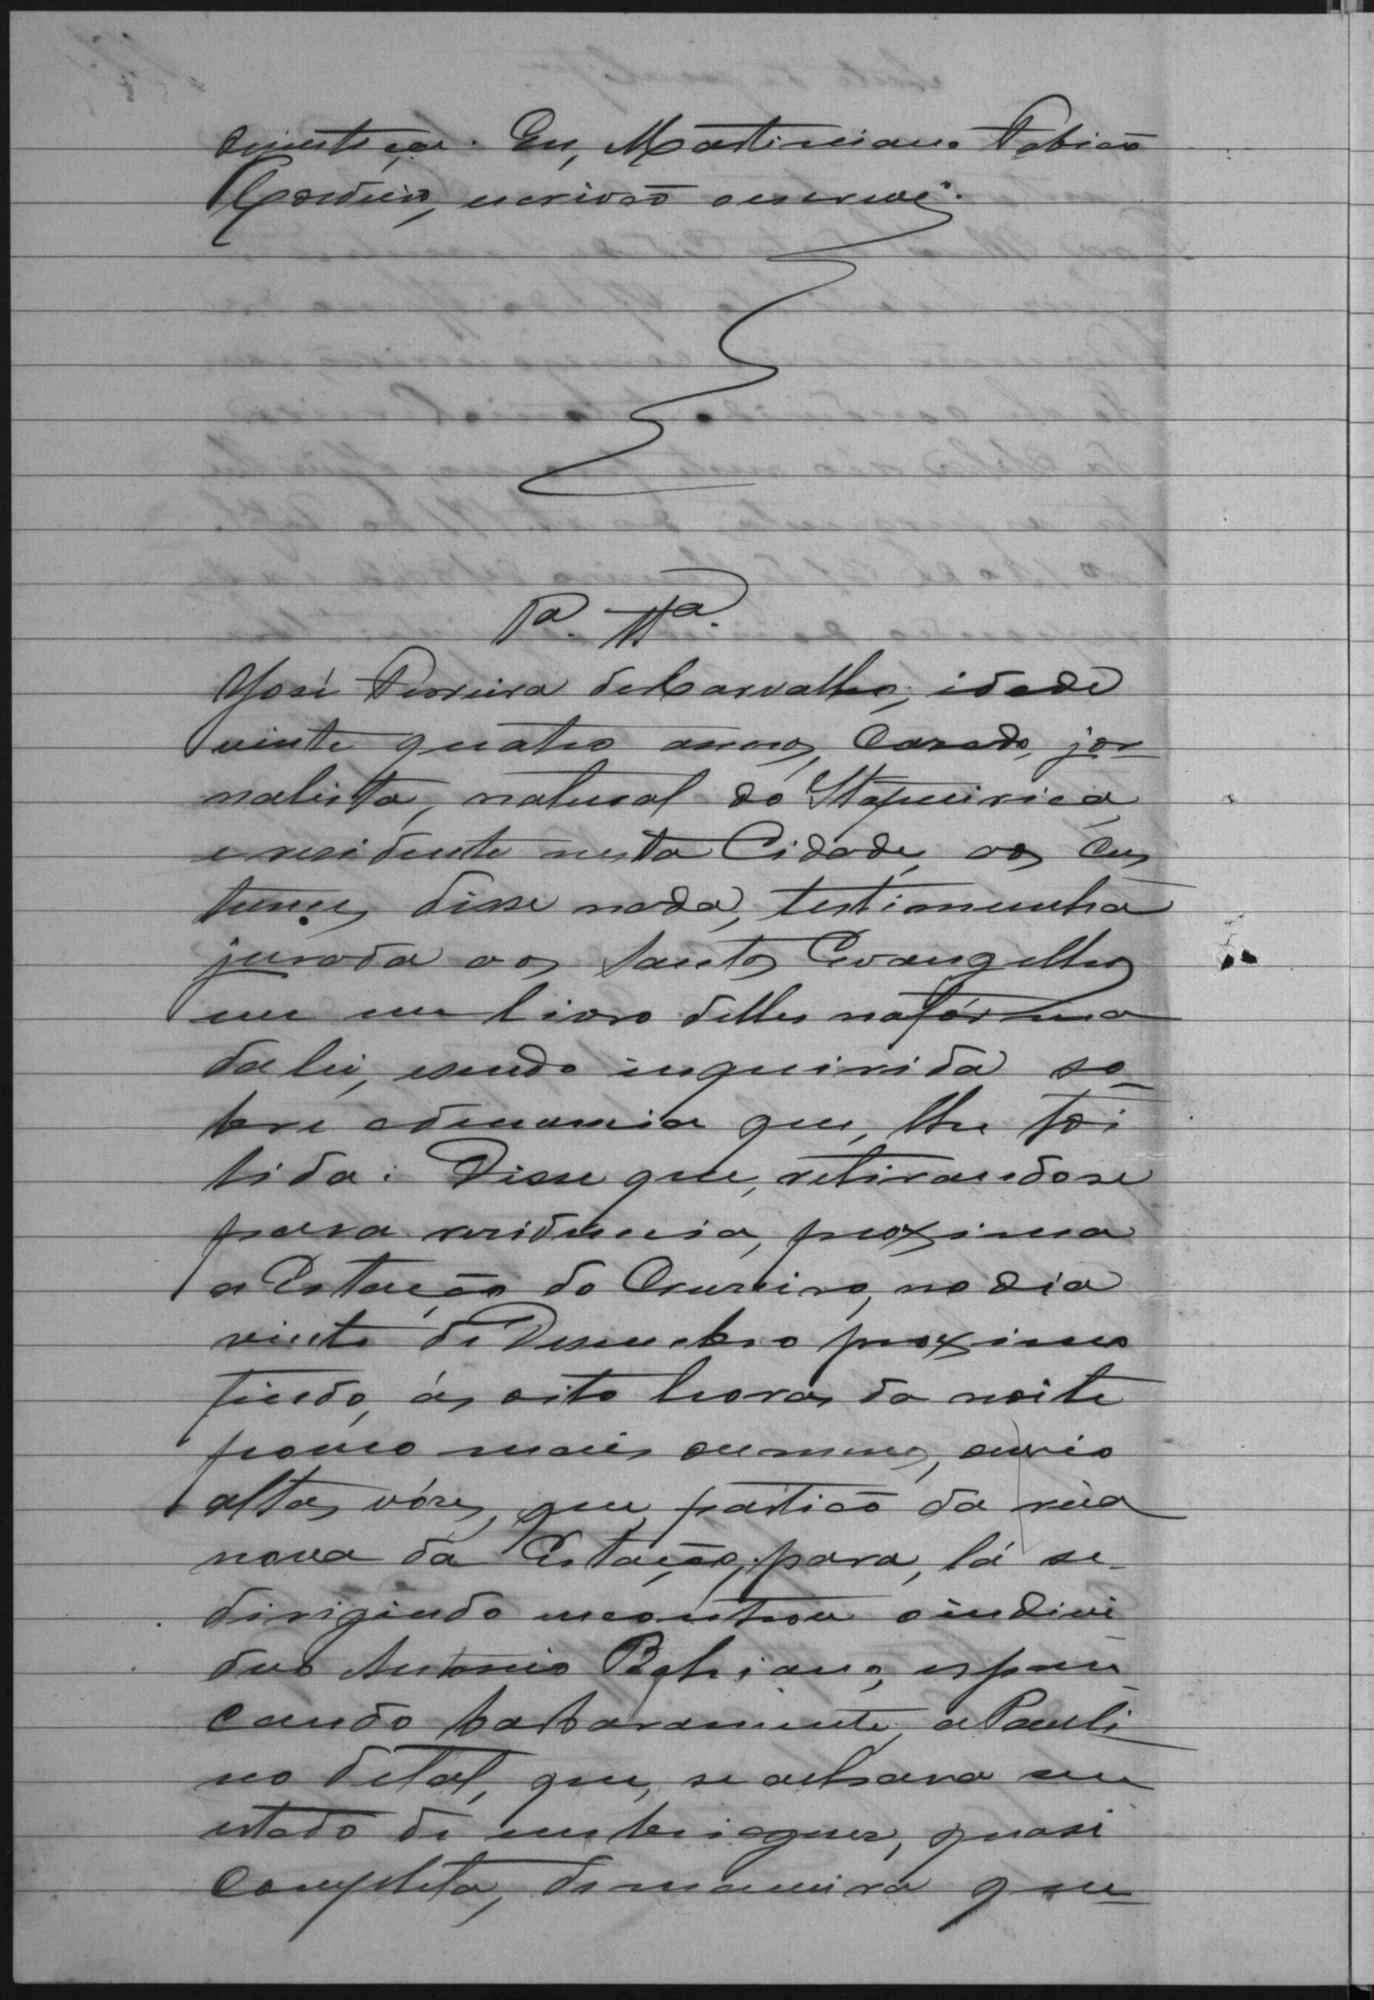 ajustiça. Eu, Martiniano Fabião
Cordeiro, escrivão o escrevi.
1a. Tta.
José Ferreira de Carvalho, idade
vinte quatro annos, Casado, jor-
nalista, natural do Itapicirica
e residente nesta Cidade, aos Cus-
tumes disse nada, testimunha
jurada aos Santos Evangelhos
em um livro delles na fórma
da lei, esendo inquirida so-
bre adenuncia que, lhe foi
lida: Disse que, retirandose
para residencia, proxima
a Estação do Cruzeiro, no dia
vinte de Desembro proximo
findo, ás oito horas da noite
pouco mais ou menos, ouvio
altas vózes, que, partião da rua
nova da Estação, para, lá se-
dirigindo encontrou o indivi-
duo Antonio Bahiano, espan-
cando barbaramente, a Pauli-
no de tal, que, se achava em
estado de embriaguez, quasi
completa, de maneira que